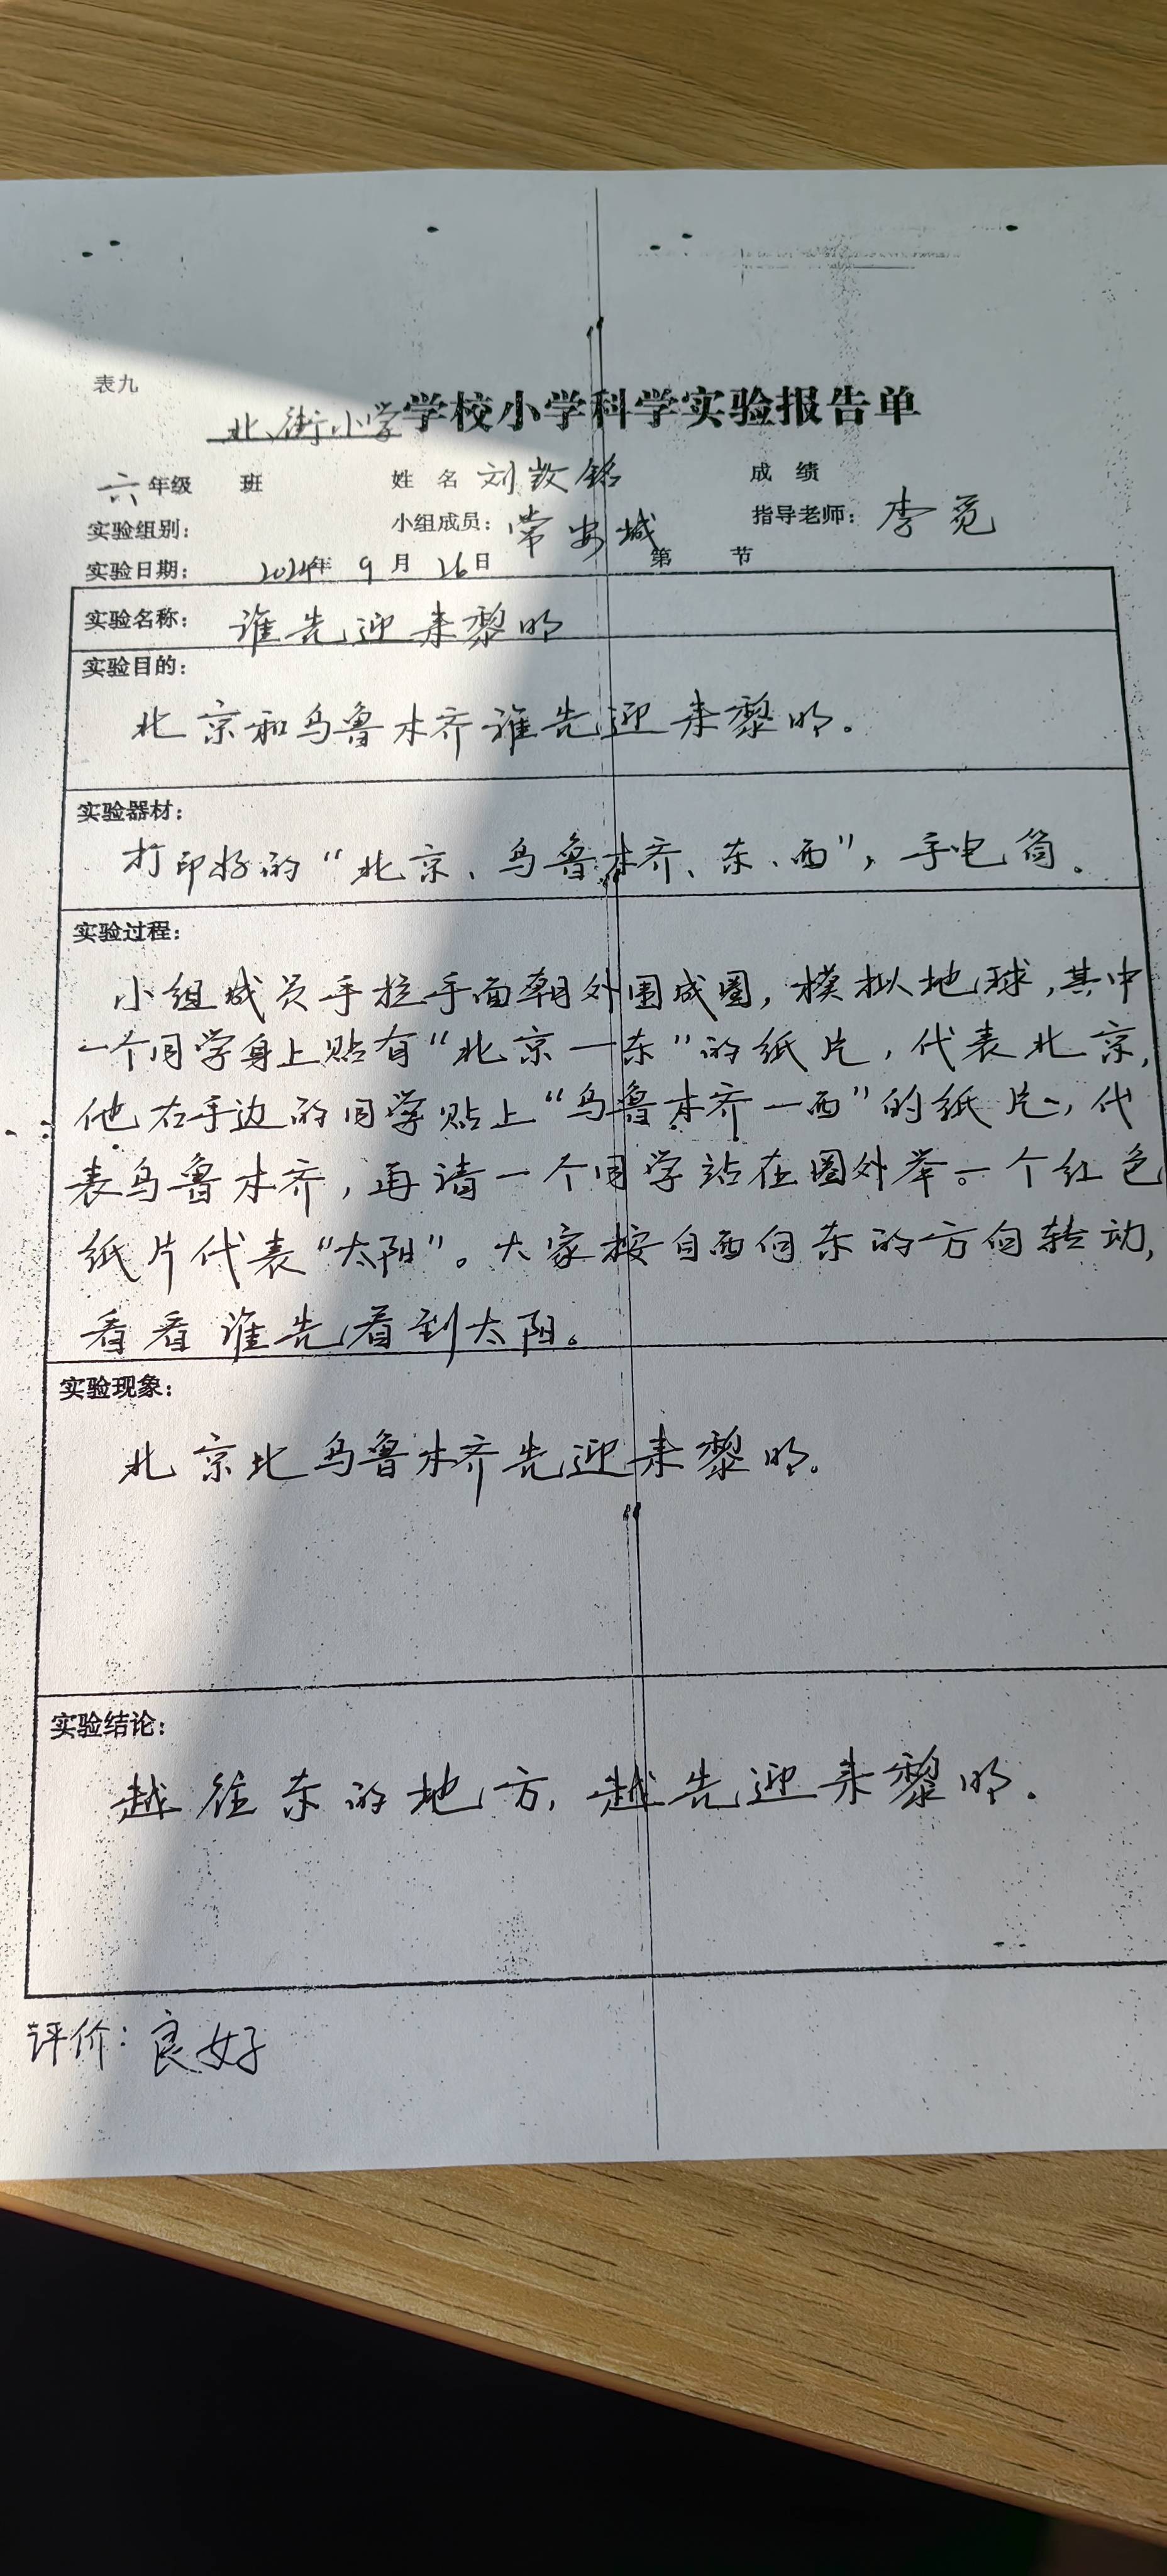 表九
北街小学学校小学科学实验报告单
六年级 班 姓 名 刘致铭 成 绩
实验组别： 小组成员：常安城 指导老师：李觅
实验日期： 2024年 9 月 26日 第 节
实验名称： 谁先迎来黎明
实验目的：
北京和乌鲁木齐谁先迎来黎明。
实验器材：
打印好的“北京、乌鲁木齐、东、西”，手电筒。
实验过程：
小组成员手拉手面朝外围成圈，模拟地球，其中
一个同学身上贴有“北京—东”的纸片，代表北京，
他右手边的同学贴上“乌鲁木齐—西”的纸片，代
表乌鲁木齐，再请一个同学站在圈外举。一个红色
纸片代表“太阳”。大家按自西向东的方向转动，
看看谁先看到太阳。
实验现象：
北京比乌鲁木齐先迎来黎明。
实验结论：
越往东的地方，越先迎来黎明.
评价：良好